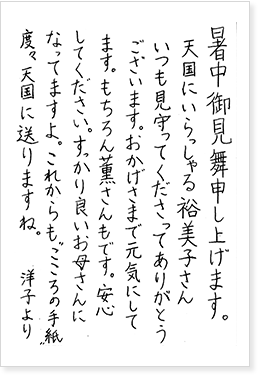 暑中御見舞申し上げます。
天国にいらっしゃる裕美子さん
いつも見守ってくださってありがとう
ございます。おかげさまで元気にして
ます。もちろん薫さんもです。安心
してください。すっかり良いお母さんに
なってますよ。これからも〝こころの手紙〟
度々天国に送りますね。
洋子より